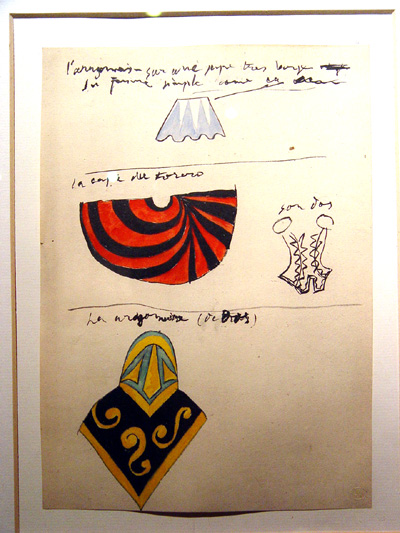 l'arragonais - sur une jupe tres large
sa forme simple come
la cape du torero
son dos
La aragonaise (de Dos)